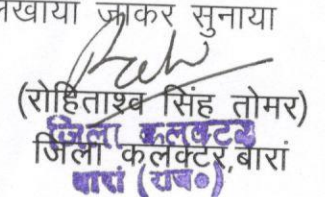 लखाया जाकर सुनाया
(रोहिताश्व सिंह तोमर)
जिला कलक्टर
जिला कलेक्टर,बारां
बारां (राज०)